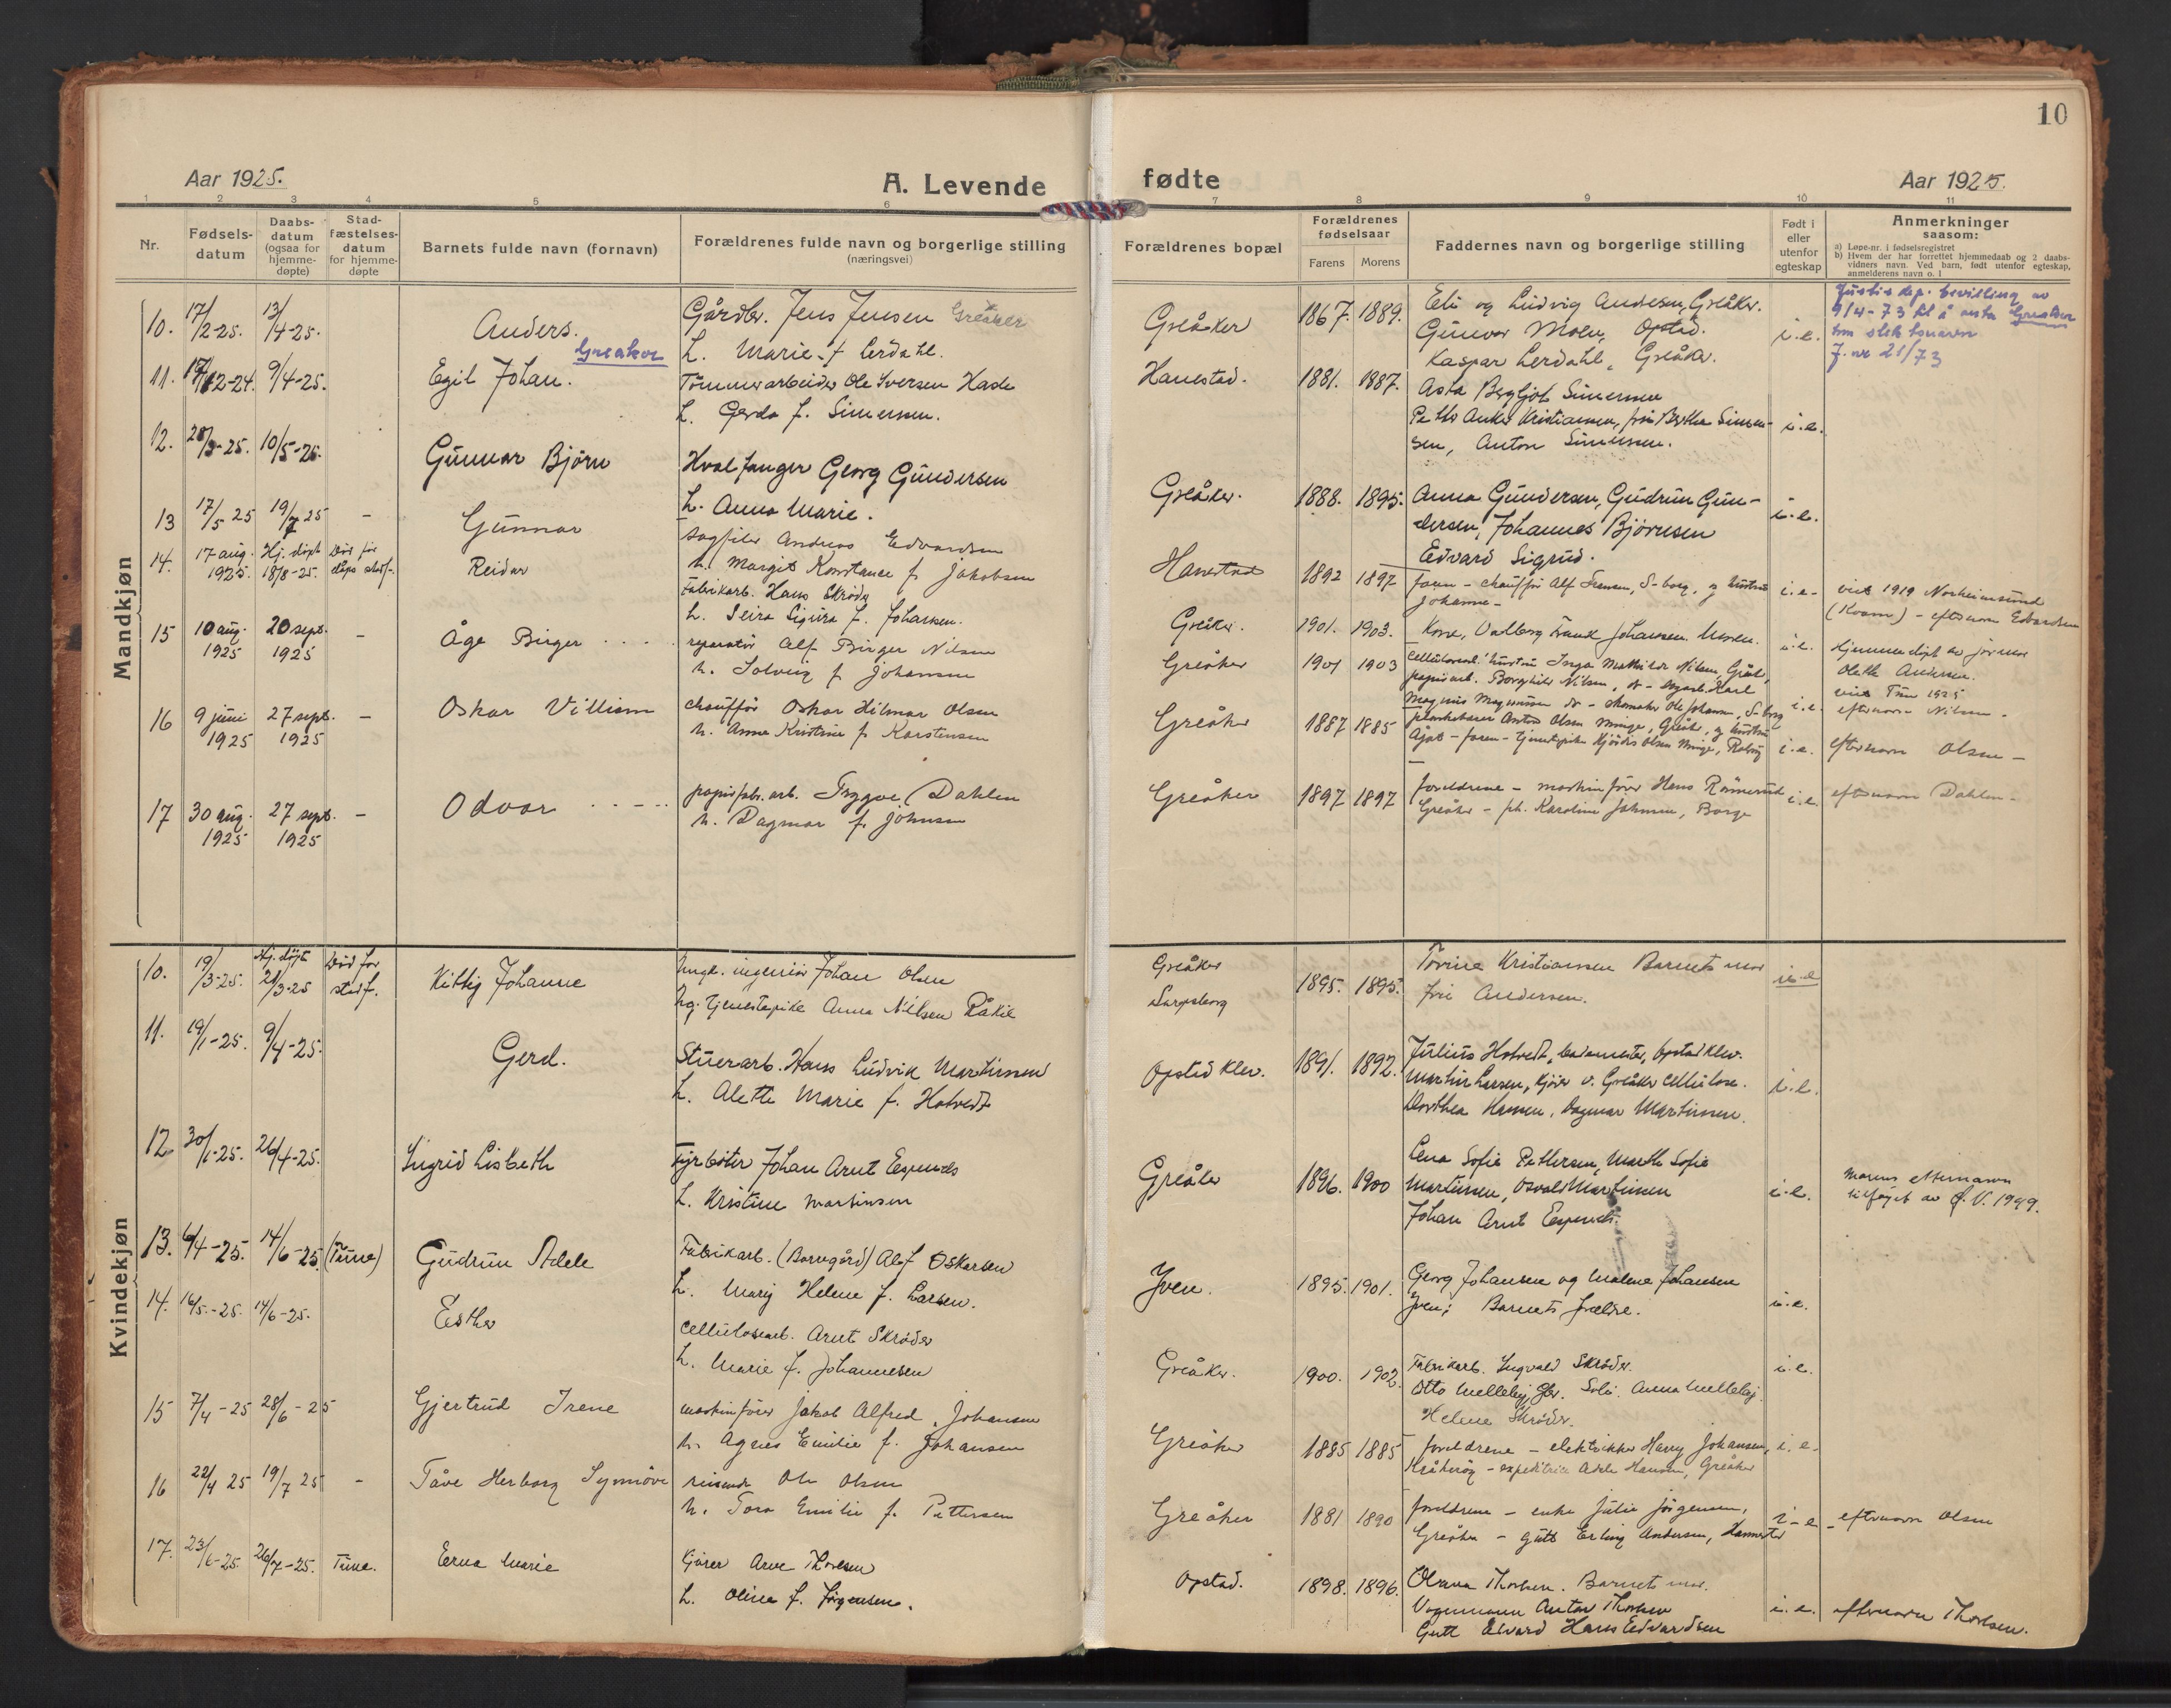 10
Aar 1925.
A. Levende
fødte
Aar 1925.
1 2 3 4 5 6 7 8 9 10 11
Nr.
Fødsels-
datum
Daabs-
datum
(ogsaa for
hjemme-
døpte)
Stad-
fæstelses-
datum
for hjemme-
døpte
Barnets fulde navn (fornavn)
Forældrenes fulde navn og borgerlige stilling
(næringsvei)
Forældrenes bopæl
Forældrenes
fødselsaar
Farens
Morens
Faddernes navn og borgerlige stilling
Født i
eller
utenfor
egteskap
Anmerkninger
saasom:
a) Løpe-nr. i fødselsregistret
b) Hvem der har forrettet hjemmedaab og 2 daabs-
vidners navn. Ved barn, født utenfor egteskap,
anmelderens navn o. l
Mandkjøn
10. 17/2-25. 13/4-25. Anders. Greaker
Gårdbr. Jens Jensen Greåker
h. Marie f. Lerdahl.
Greåker 1867. 1889.
Eli og Ludvig Andersen, Greåker.
Gunvor Moen, Opstad.
Kaspar Lerdahl, Greåker.
i.e.
Justis dep. bevilling av
9/4-73 til å anta Greaker
som slektsnavn
J.nr 21/73
11. 12-24. 9/4-25. Egil Johan.
Tømmerarbeider Ole Iversen Hasle
h. Gerda f. Simensen.
Hanestad. 1881. 1887.
Asta Bergljot Simensen
Petter Anker Kristiansen, frk Berthe Simen-
sen, Anton Simensen.
i.e.
12. 28/3-25. 10/5-25. Gunnar Bjørn
Hvalfanger Georg Gundersen
h. Anna Marie.
Greåker. 1888. 1895.
Anna Gundersen, Gudrun Gun-
dersen, Johannes Bjørnsen
Edvard Sigrud.
i.e.
13 17/5 25 19/7 25 - Gunnar
Sagfiler Andreas Edvardsen
h. Margit Konstance f. Jakobsen
Hanestad 1892 1897
faren - chauffør Alf Iversen, S-borg, og hustru
Johanne -
i.e.- viet 1919 Norheimsund
(Kvam) - efternavn Edvardsen
14. 17 aug. 1925. Hj. døpt 18/8-25. Død før
dåps stadf. Reidar
Fabrikarb. Hans Skrøder
h. Signra f. Johansen.
Greåker. 1901. 1903.
Valborg Johansen.
i.e. Hjemmedøpt av jormor
Olette Andersen.
15 10 aug. 1925 20 sept. 1925 - Åge Birger . . . .
reparatør Alf Birger Nilsen
h. Solveig f. Johansen
Greåker 1901 1903
hustru Inga Mathilde Nilsen,
papirarb. Borghild Nilsen,
i.e. viet Tune 1925
efternavn Nilsen -
16 9 juni 1925 27 sept. 1925 - Oskar Villiam
chauffør Oskar Hilmar Olsen
h. Anna Kristine f. Karstensen
Greåker 1887 1885
Anton Olsen Minge, Greåker, og hustru
faren - Hjørdis Olsen Minge,
i.e. efternavn Olsen -
17 30 aug. 1925 27 sept. 1925 - Odvar . . - -
papirfabr.arb. Trygve Dahlen
h. Dagmar f. Johnsen
Greåker 1897 1897
foreldrene - maskinfører Hans Rømerud
Greåker - frk. Karoline Johnsen, Borge
i.e. efternavn Dahlen -
Kvindekjøn
10. 19/3-25. Hj. døpt 21/3-25 Død før
stadf. Kittig Johanne
Ungk. ingeniør Johan Olsen
og tjenestepike Anna Nilsen Råkil
Greåker
Sarpsborg
1895. 1895.
Torine Kristiansen Barnets mor
Andersen.
u.e
11. 19/1-25. 9/4-25. Gerd.
Stuerarb. Hans Ludvik Martinsen
h. Alette Marie f. Hotvedt
Opstad Klev. 1891. 1892.
Julius Hotvedt, bademester, Opstad Klev.
Martin Larsen, kjører v. Greåker Cellulose.
Dorthea Hansen, Dagmar Martinsen.
i.e.
12 30/1-25. 26/4-25. Ingrid Lisbeth
Fyrbøter Johan Arnt Espenes
h. Kristine Martinsen
Greåker 1896. 1900
Lena Sofie Pettersen, Marthe Sofie
Martinsen, Osvald Martinsen
Johan Arnt Espenes.
i.e.
Morens etternavn
tilføyet av Ø. V. 1949.
13. 6/4-25. 14/6-25. (Tune) Gudrun Adele
Fabrikarb. (Borregård) Alf Oskarsen
h. Mary Helene f. Larsen.
Yven. 1895. 1901.
Georg Johansen og Malene Johansen
Yven; Barnets forældre.
i.e.
14. 16/5.-25. 14/6-25. Esther
Cellulosearb. Arnt Skrøder
h. Marie f. Johannesen
Greåker. 1900. 1902.
Fabrikarb. Ingvald Skrøder.
Otto Melleby, Gbr. Soli. Anna Melleby
Helene Skrøder.
i.e.
15 7/4-25 28/6-25 Gjertrud Irene
maskinfører Jakob Alfred Johansen
h. Agnes Emilie f. Johansen
Greåker 1885 1885
foreldrene - elektriker Harry Johansen,
Kråkerøy - expeditrice Adele Hansen, Greåker
i.e-
16 22/4 25 19/7 25 - Tåve Herborg Synnöve
reisende Ole Olsen
h. Tora Emilie f. Pettersen
Greåker 1881 1890
foreldrene - enke Julie Jørgensen,
Greåker - gutt Erling Andersen, Hannestad
i-e - efternavn Olsen
17. 23/6-25 26/7-25. Tune. Erna Marie
Kjører Arve Thoresen
h. Oline f. Jørgensen.
Opstad. 1898. 1896.
Thorsen. Barnets mor.
Vognmann Anton Thorsen
Gutt Edvard Hans Edvardsen
i.e. efternavn Thorsen.